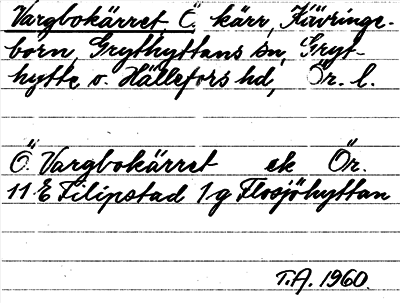 Vargbokärret, Ö, kärr, Hävringe-
born, Grythyttans sn, Gryt-
hytte o. Hällefors hd, Ör. l.
Ö. Vargbokärret ek Ör.
11 E Filipstad 1g Flosjöhyttan
T.A. 1960.